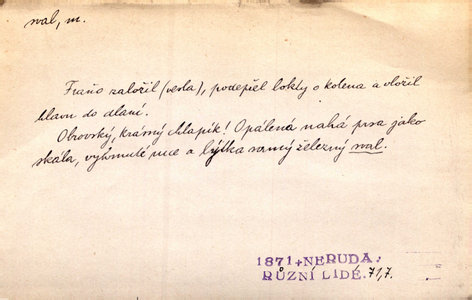 sval, m.
Fraňo založil (vesla), podepřel lokty o kolena a vložil
hlavu do dlaní.
Obrovský, krásný chlapík! Opálená nahá prsa jako
skála, vyhrnuté ruce a lýtka samý železný sval.
1871 + NERUDA,
RŮZNÍ LIDÉ. 71,7.